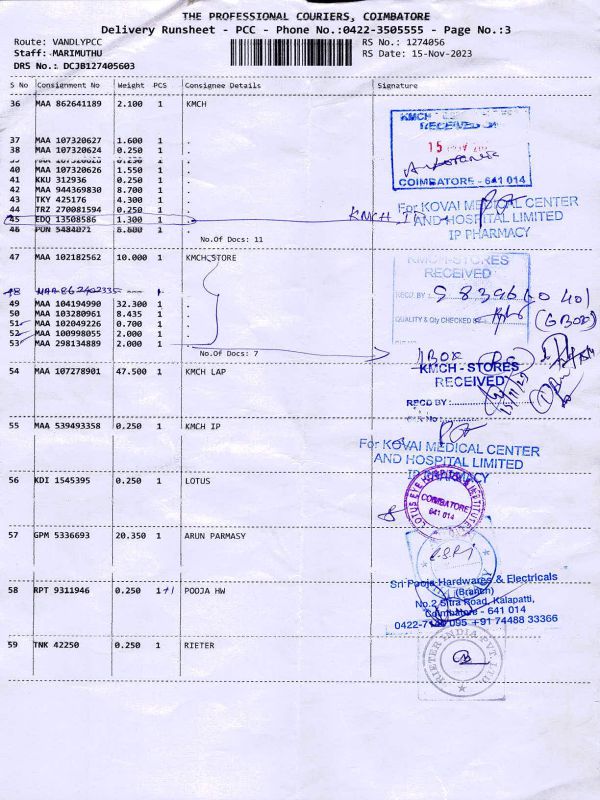 THE PROFESSIONAL COURIERS, COIMBATORE
Delivery Runsheet - PCC - Phone No.:0422-3505555 - Page No.:3
Route: VANDLYPCC RS No.: 1274056
Staff: MARIMUTHU RS Date: 15-Nov-2023
DRS No.: DCJB127405603
S No Consignment No Weight PCS Consignee Details Signature
36 MAA 862641189 2.100 1 KMCH
KMCH
RECEIVED
37 MAA 107320627 1.600 1 .
38 MAA 107320624 0.250 1 .
15
39 MAA 107320628 0.250 1 .
40 MAA 107320626 1.550 1 .
41 KKU 312936 0.250 1 .
COIMBATORE - 641 014
42 MAA 944369830 8.700 1 .
43 TKY 425176 4.300 1 .
For KOVAI MEDICAL CENTER
44 TRZ 270081594 0.250 1 .
KMCH
45 EDQ 13508586 1.300 1 .
AND HOSPITAL LIMITED
46 PON 5484071 8.800 1 .
IP PHARMACY
No.Of Docs: 11
47 MAA 102182562 10.000 1 KMCH STORE
KMCH-STORES
RECEIVED
48 1
RECD.BY
49 MAA 104194990 32.300 1 .
50 MAA 103280961 8.435 1 .
QUALITY & Qty CHECKED BY
51 MAA 102049226 0.700 1 .
52 MAA 100998055 2.000 1 .
53 MAA 298134889 2.000 1 .
No.Of Docs: 7
1 BOX
KMCH - STORES
54 MAA 107278901 47.500 1 KMCH LAP
RECEIVED
RECD BY:
55 MAA 539493358 0.250 1 KMCH IP
For KOVAI MEDICAL CENTER
AND HOSPITAL LIMITED
IP PHARMACY
56 KDI 1545395 0.250 1 LOTUS
LOTUS EYE HOSPITAL & INSTITUTE
COIMBATORE
641 014
57 GPM 5336693 20.350 1 ARUN PARMASY
Sri Pooja Hardwares & Electricals
58 RPT 9311946 0.250 1 +1 POOJA HW
(Branch)
No.2 Sitra Road, Kalapatti,
Coimbatore - 641 014
+91 74488 33366
59 TNK 42250 0.250 1 RIETER
RIETER INDIA PVT. LTD